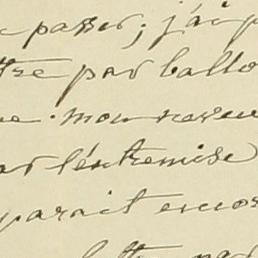 passer; j'ai p
tre par ballo
mon neveu
par l'éntremise
parait encor